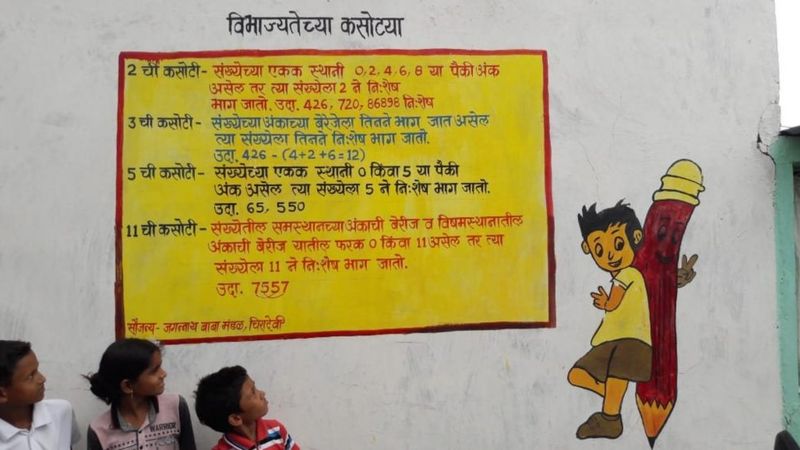 विभाज्यतेच्या कसोटया
2 ची कसोटी- संख्येच्या एकक स्थानी 0,2,4,6,8 या पैकी अंक
असेल तर त्या संख्येला 2 ने नि:शेष
भाग जातो. उदा. 426, 720, 86898 नि:शेष
3 ची कसोटी- संख्येच्या अंकाच्या बेरेजेला तिनने भाग जात असेल
त्या संख्येला तिनने नि:शेष भाग जातो.
उदा. 426 - (4+2+6=12)
5 ची कसोटी- संख्येच्या एकक स्थानी 0 किंवा 5 या पैकी
अंक असेल त्या संख्येला 5 ने नि:शेष भाग जातो.
उदा. 65, 550
11 ची कसोटी- संख्येतील समस्थानच्या अंकाची बेरीज व विषमस्थानातील
अंकाची बेरीज यातील फरक 0 किंवा 11 असेल तर त्या
संख्येला 11 ने नि:शेष भाग जातो.
उदा. 7557
सौजन्य- जगन्नाथ बाबा मंडळ, चिरादेवी
WARRIOR